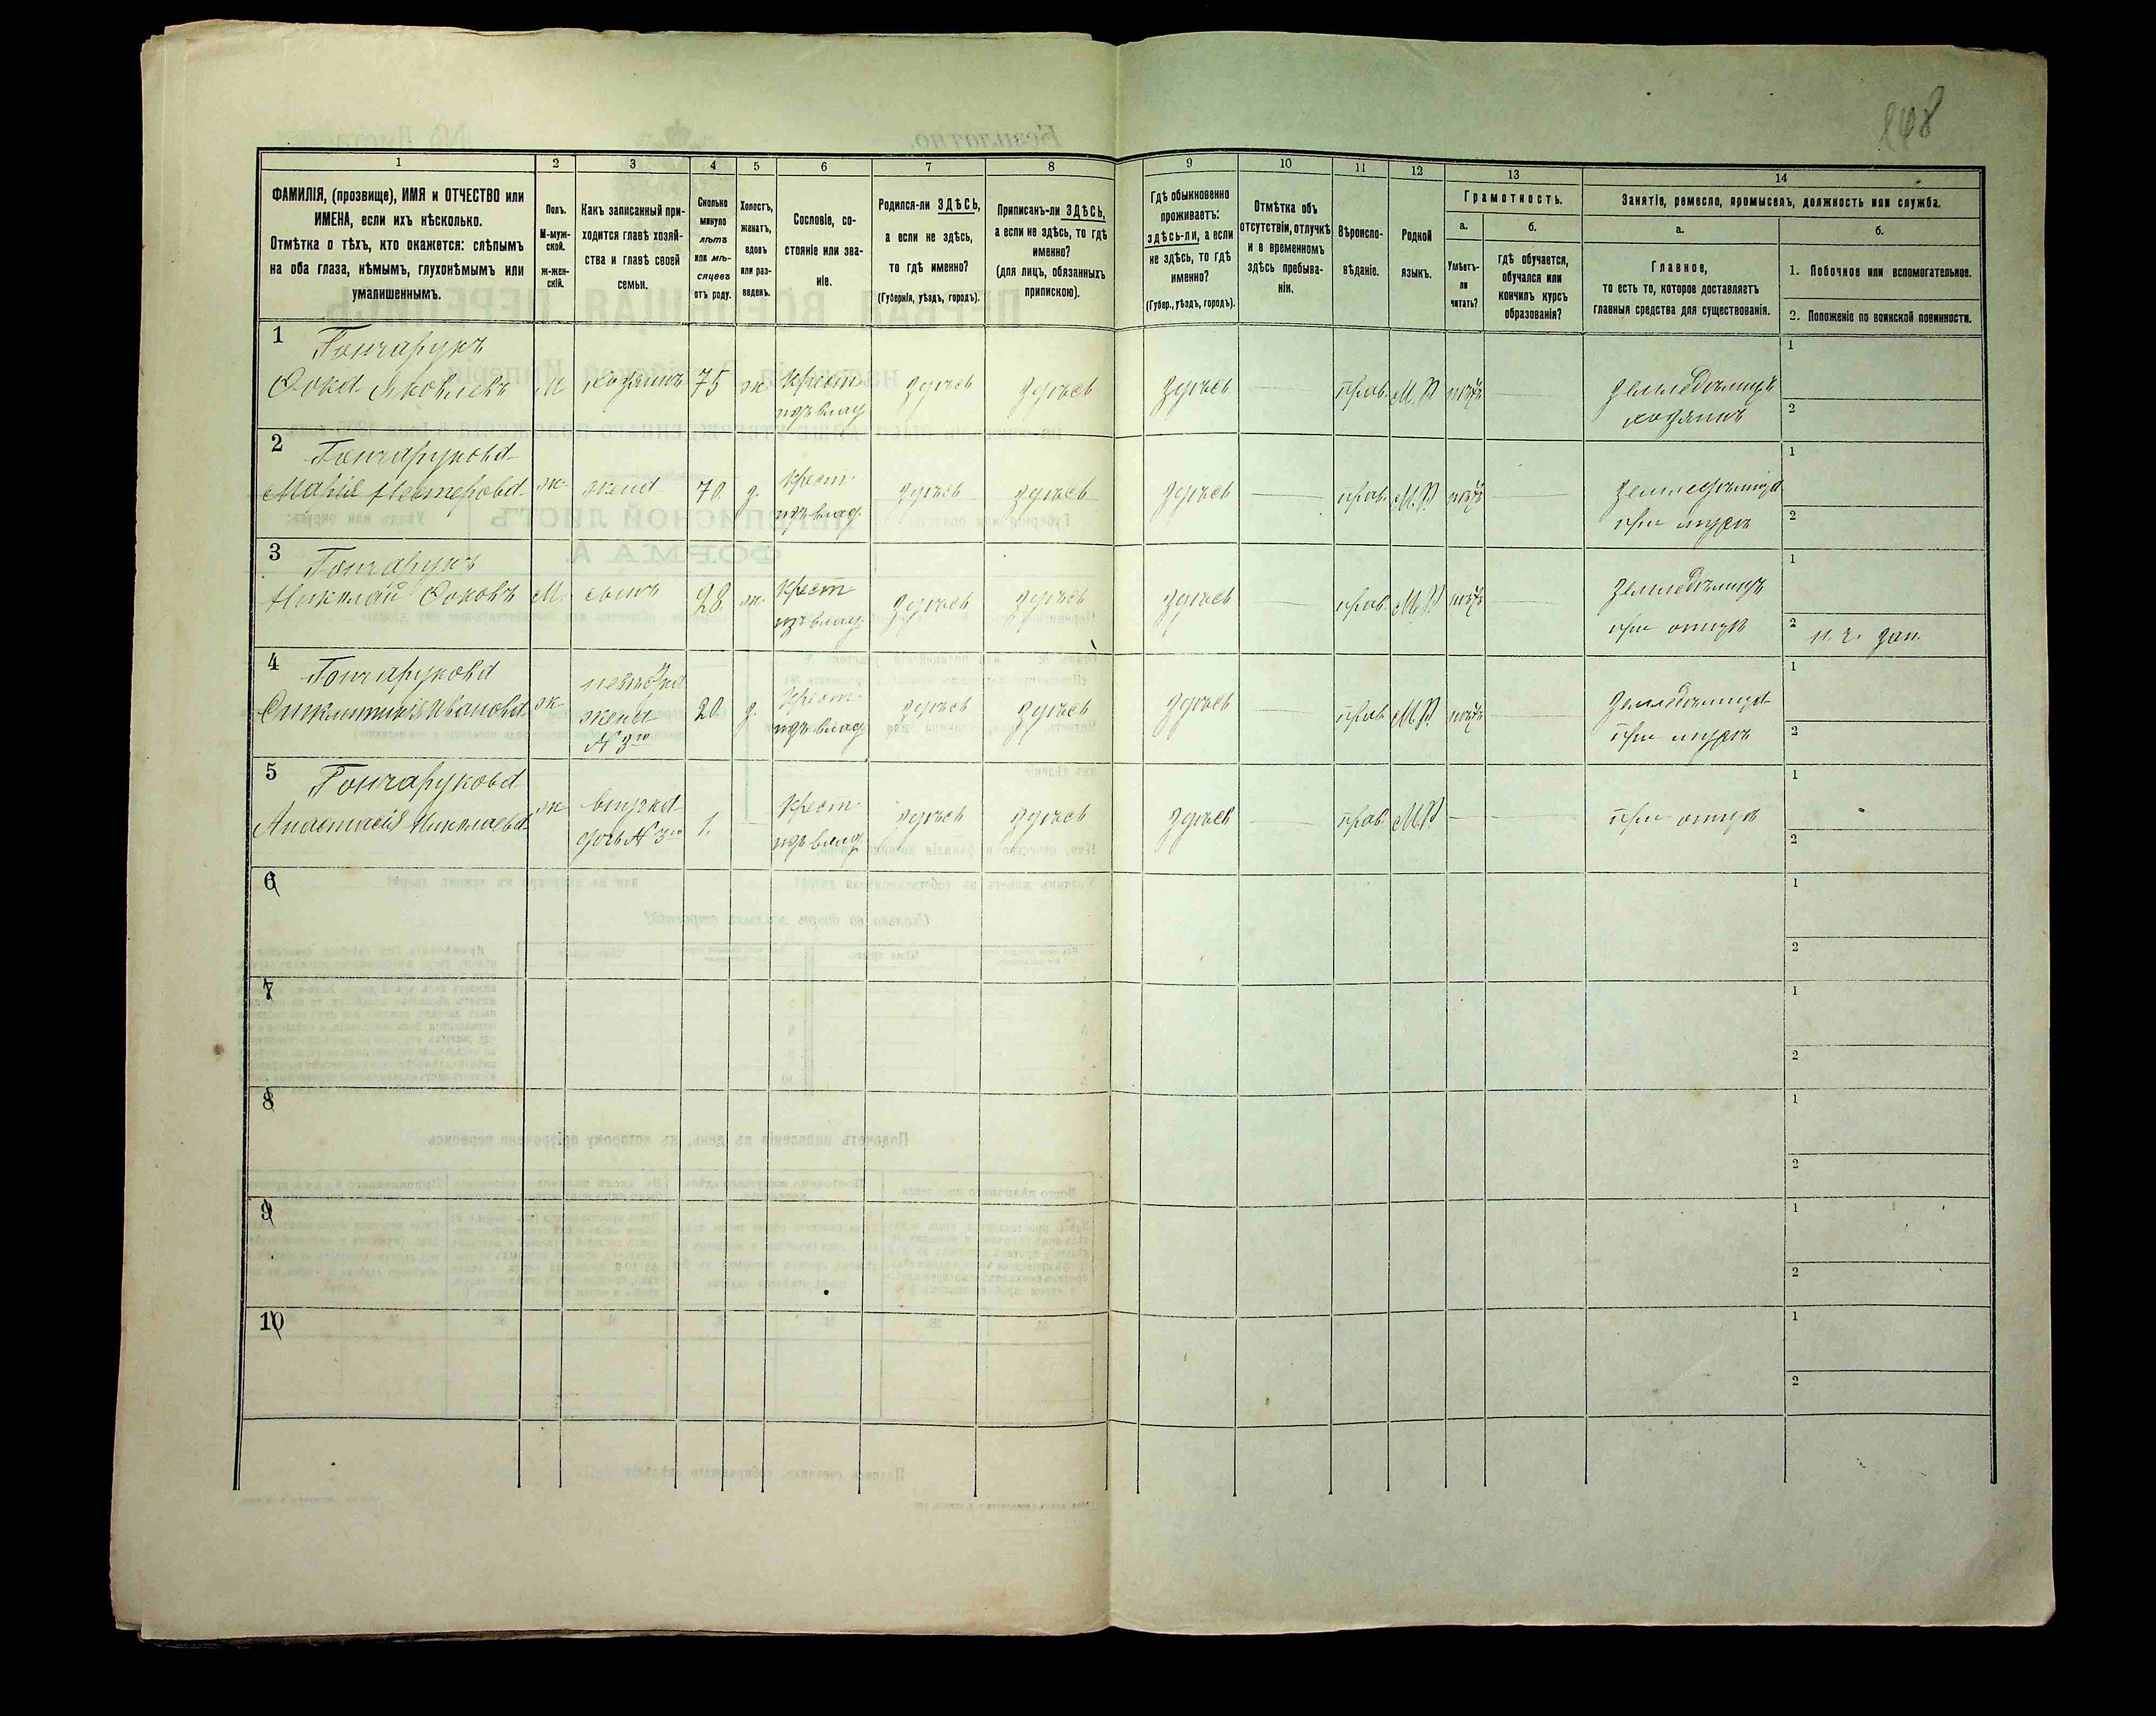 168
1 2 3 4 5 6 7 8 9 10 11 12 13 14
ФАМИЛІЯ, (прозвище), ИМЯ и ОТЧЕСТВО или
ИМЕНА, если ихъ нѣсколько.
Отмѣтка о тѣхъ, кто окажется: слѣпымъ
на оба глаза, нѣмымъ, глухонѣмымъ или
умалишеннымъ.
Полъ.
М-муж-
ской.
ж-жен-
скій.
Какъ записанный при-
ходится главѣ хозяй-
ства и главѣ своей
семьи.
Сколько
минуло
лѣтъ
или мѣ-
сяцевъ
отъ роду.
Холостъ,
женатъ,
вдовъ
или раз-
веденъ.
Сословіе, со-
стояніе или зва-
ніе.
Родился-ли ЗДѢСЬ,
а если не здѣсь,
то гдѣ именно?
(Губернія, уѣздъ, городъ).
Приписанъ-ли ЗДѢСЬ,
а если не здѣсь, то гдѣ
именно?
(для лицъ, обязанныхъ
припискою).
Гдѣ обыкновенно
проживаетъ:
здѣсь-ли, а если
не здѣсь, то гдѣ
именно?
(Губер., уѣздъ, городъ).
Отмѣтка объ
отсутствіи, отлучкѣ
и о временномъ
здѣсь пребыва-
ніи.
Вѣроиспо-
вѣданіе.
Родной
языкъ.
Грамотность.
а.
Умѣетъ-
ли
читать?
б.
гдѣ обучается,
обучался или
кончилъ курсъ
образованія?
Занятіе, ремесло, промыселъ, должность или служба.
а.
Главное,
то есть то, которое доставляетъ
главныя средства для существованія.
б.
1. Побочное или вспомогательное.
2. Положеніе по воинской повинности.
1 Гончарукъ
Фока Яковлевъ М хозяинъ 75 ж Крест. здѣсь здѣсь здѣсь — прав. М.Р. нѣтъ — земледѣлецъ 1
изъ влад. хозяинъ 2
2 Гончарукова
Марія Нестерова ж жена 70 з. Крест. здѣсь здѣсь здѣсь — прав. М.Р. нѣтъ — 1
изъ влад. при мужѣ 2
3 Гончарукъ
Николай Фоковъ М. сынъ 28 ж. Крест. здѣсь здѣсь здѣсь — прав. М.Р. нѣтъ — земледѣлецъ 1
изъ влад. при отцѣ 2
4 Гончарукова невѣстка
Иванова ж жена 20 з. Крест. здѣсь здѣсь здѣсь — прав. М.Р. нѣтъ 1
№ 3го изъ влад. при мужѣ 2
5 Гончарукова
Анастасія ж внучка 1. — Крест. здѣсь здѣсь здѣсь — прав. М.Р. — — при отцѣ 1
дочь № 3го изъ влад. 2
6 1
2
7 1
2
8 1
2
9 1
2
10 1
2